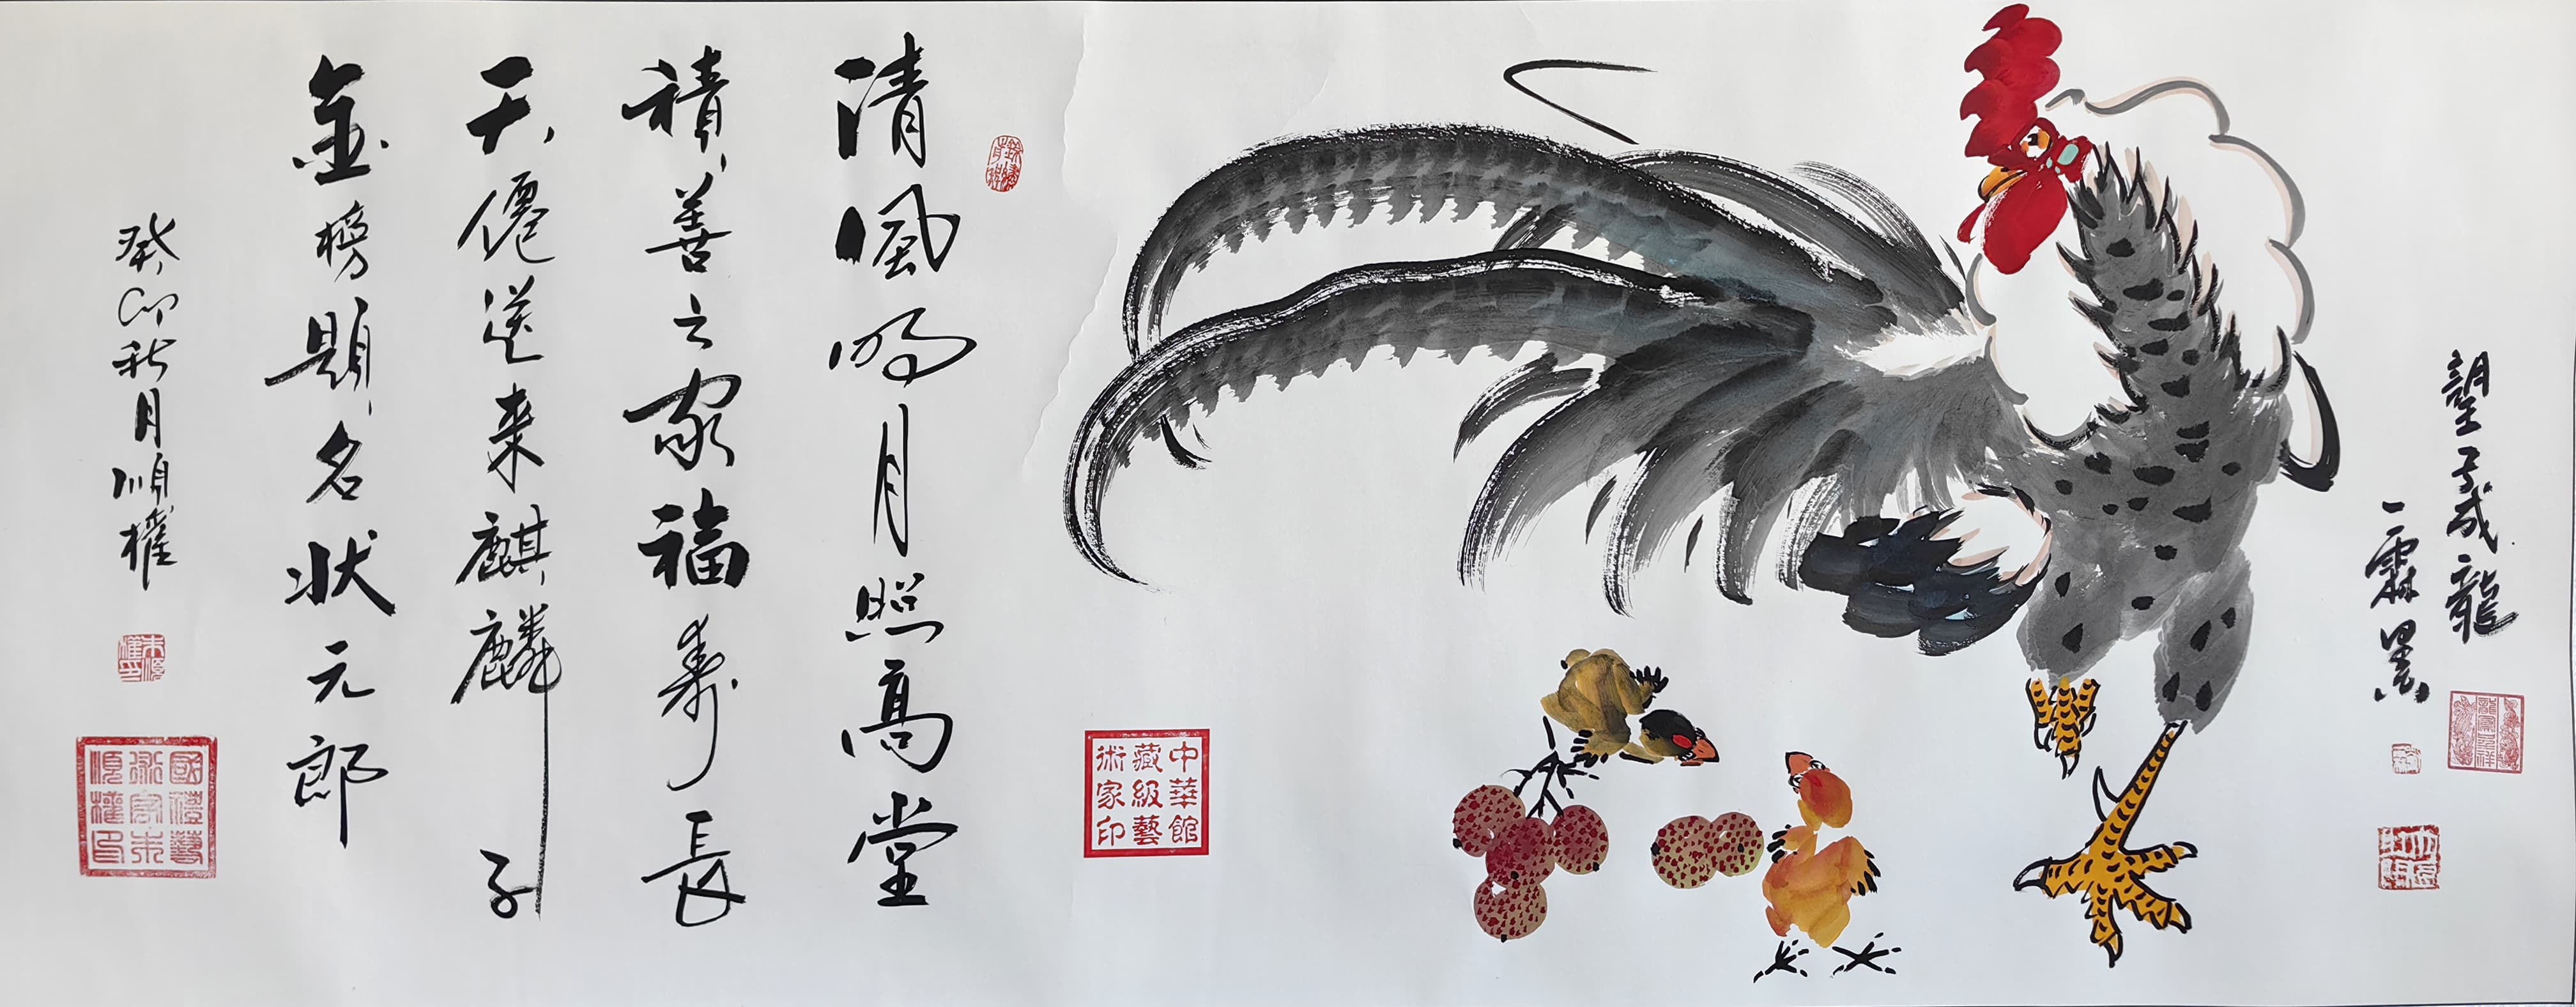 望子成龍
一霖墨
中華館
藏級藝
術家印
清風明月照高堂
積善之家福壽長
天僊送来麒麟子
金榜題名状元郎
癸卯秋月順權
朱順
權印
國禮藝
術家朱
順權印